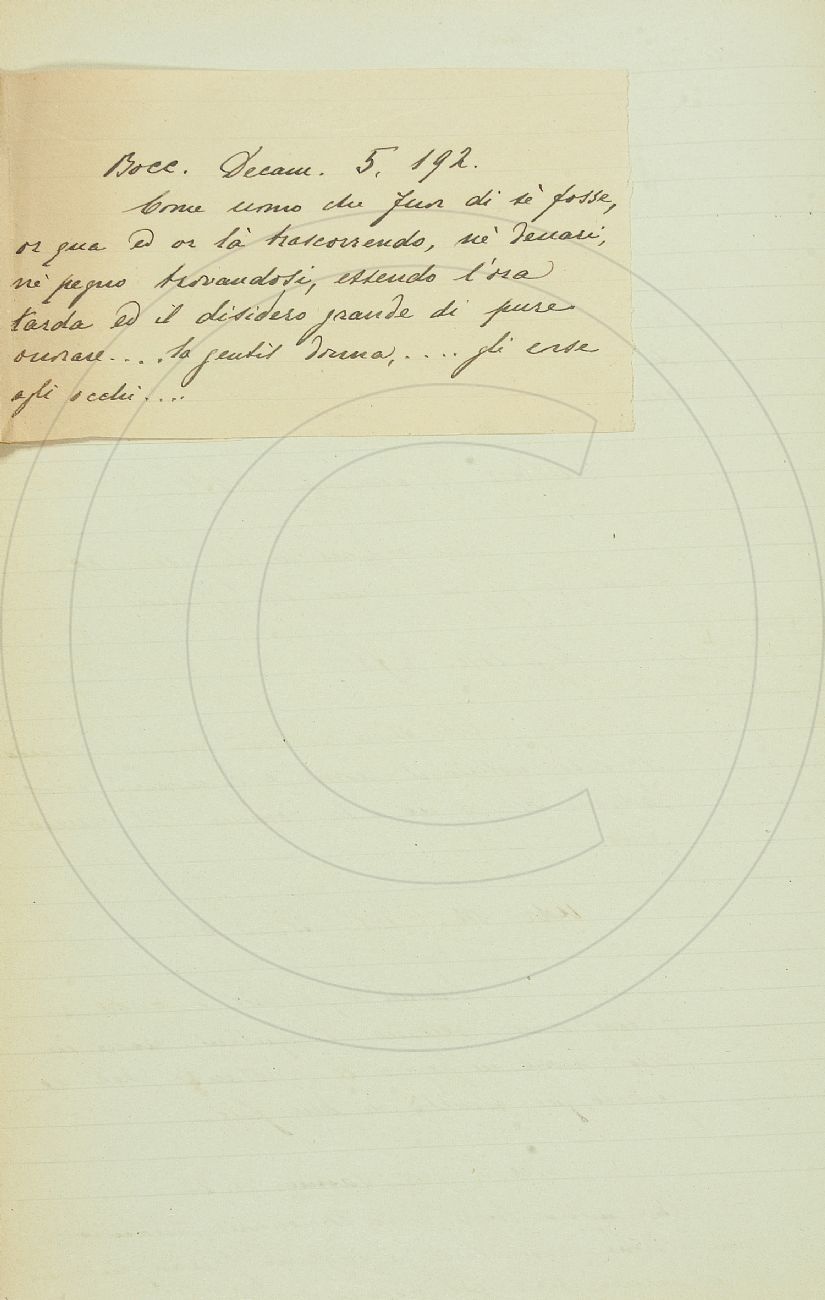 Bocc. Decam. 5. 192.
Come uomo che fuor di sè fosse,
or qua ed or là trascorrendo, nè denari,
nè pegno trovandosi, essendo l'ora
tarda ed il disidero grande di pure
onorare.... la gentil donna,.... gli corse
agli occhi....